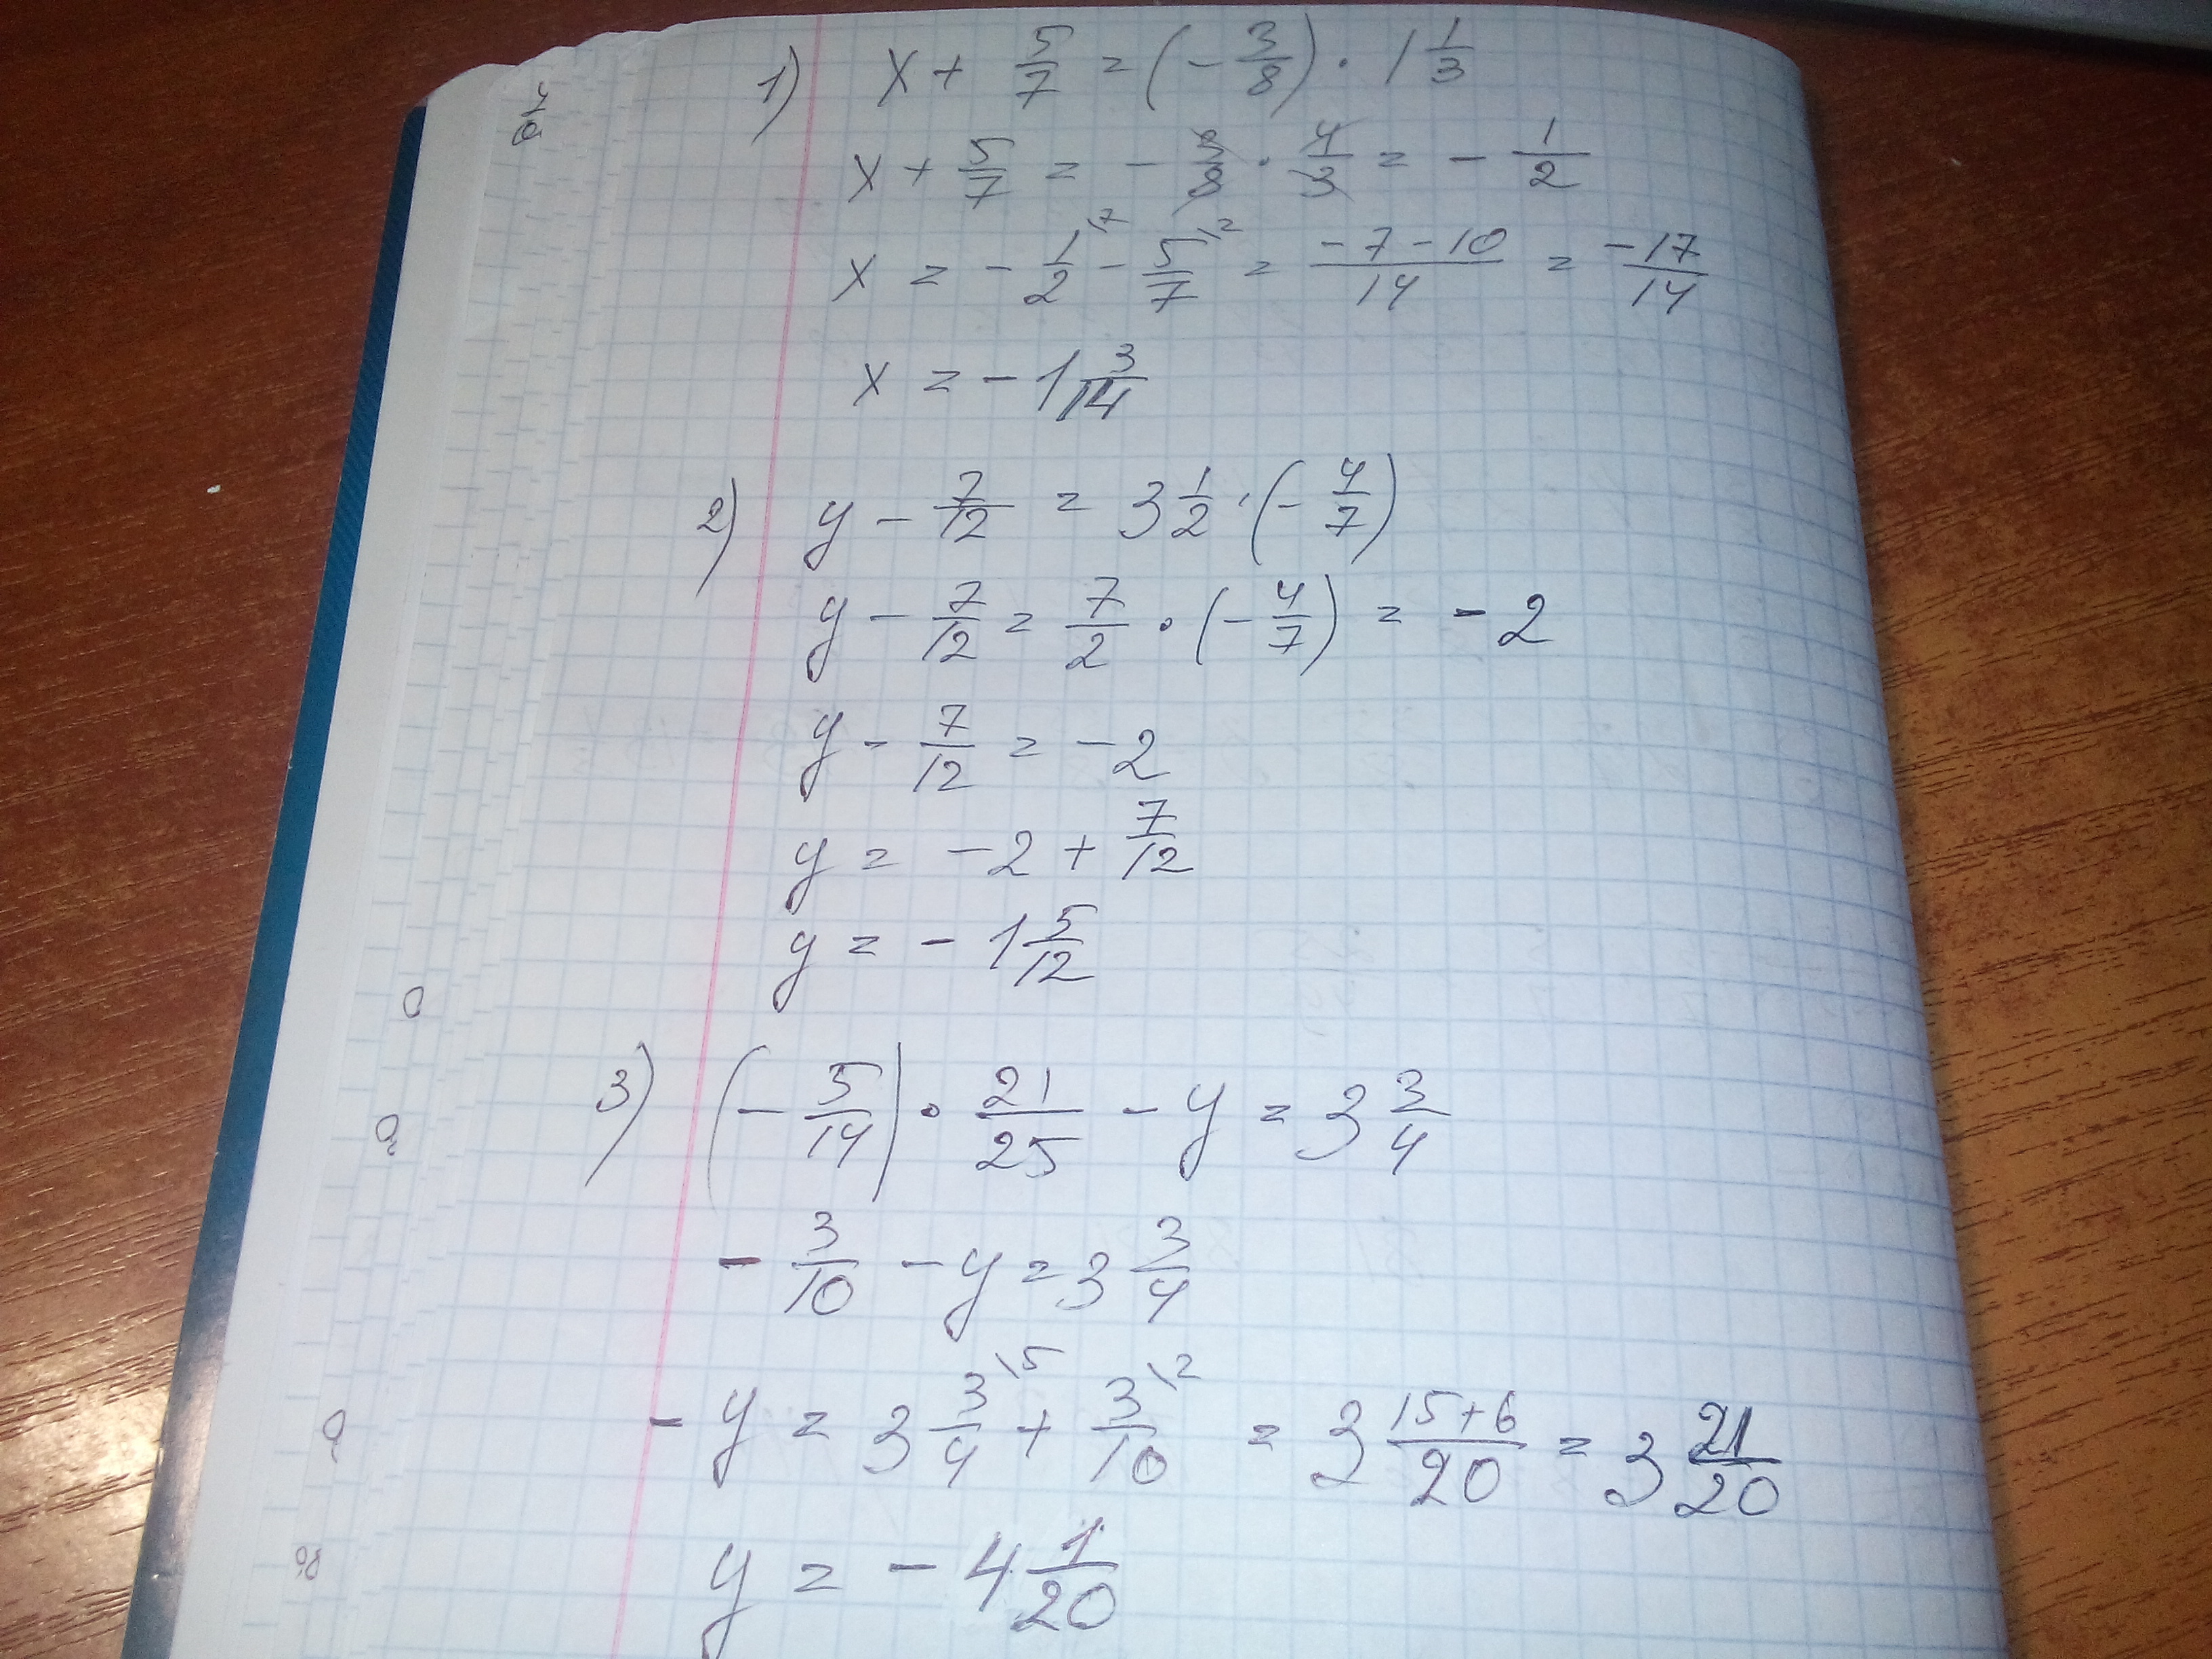 1) x + 5/7 = (- 3/8) · 1 1/3
x + 5/7 = - 3/8 · 4/3 = - 1/2
x = - 1/2 \7 - 5/7 \2 = (-7-10)/14 = -17/14
x = - 1 3/14
2) y - 7/12 = 3 1/2 · (- 4/7)
y - 7/12 = 7/2 · (- 4/7) = - 2
y - 7/12 = - 2
y = - 2 + 7/12
y = - 1 5/12
3) (- 5/14) · 21/25 - y = 3 3/4
- 3/10 - y = 3 3/4
- y = 3 3/4 \5 + 3/10 \2 = 3 (15+6)/20 = 3 21/20
y = - 4 1/20